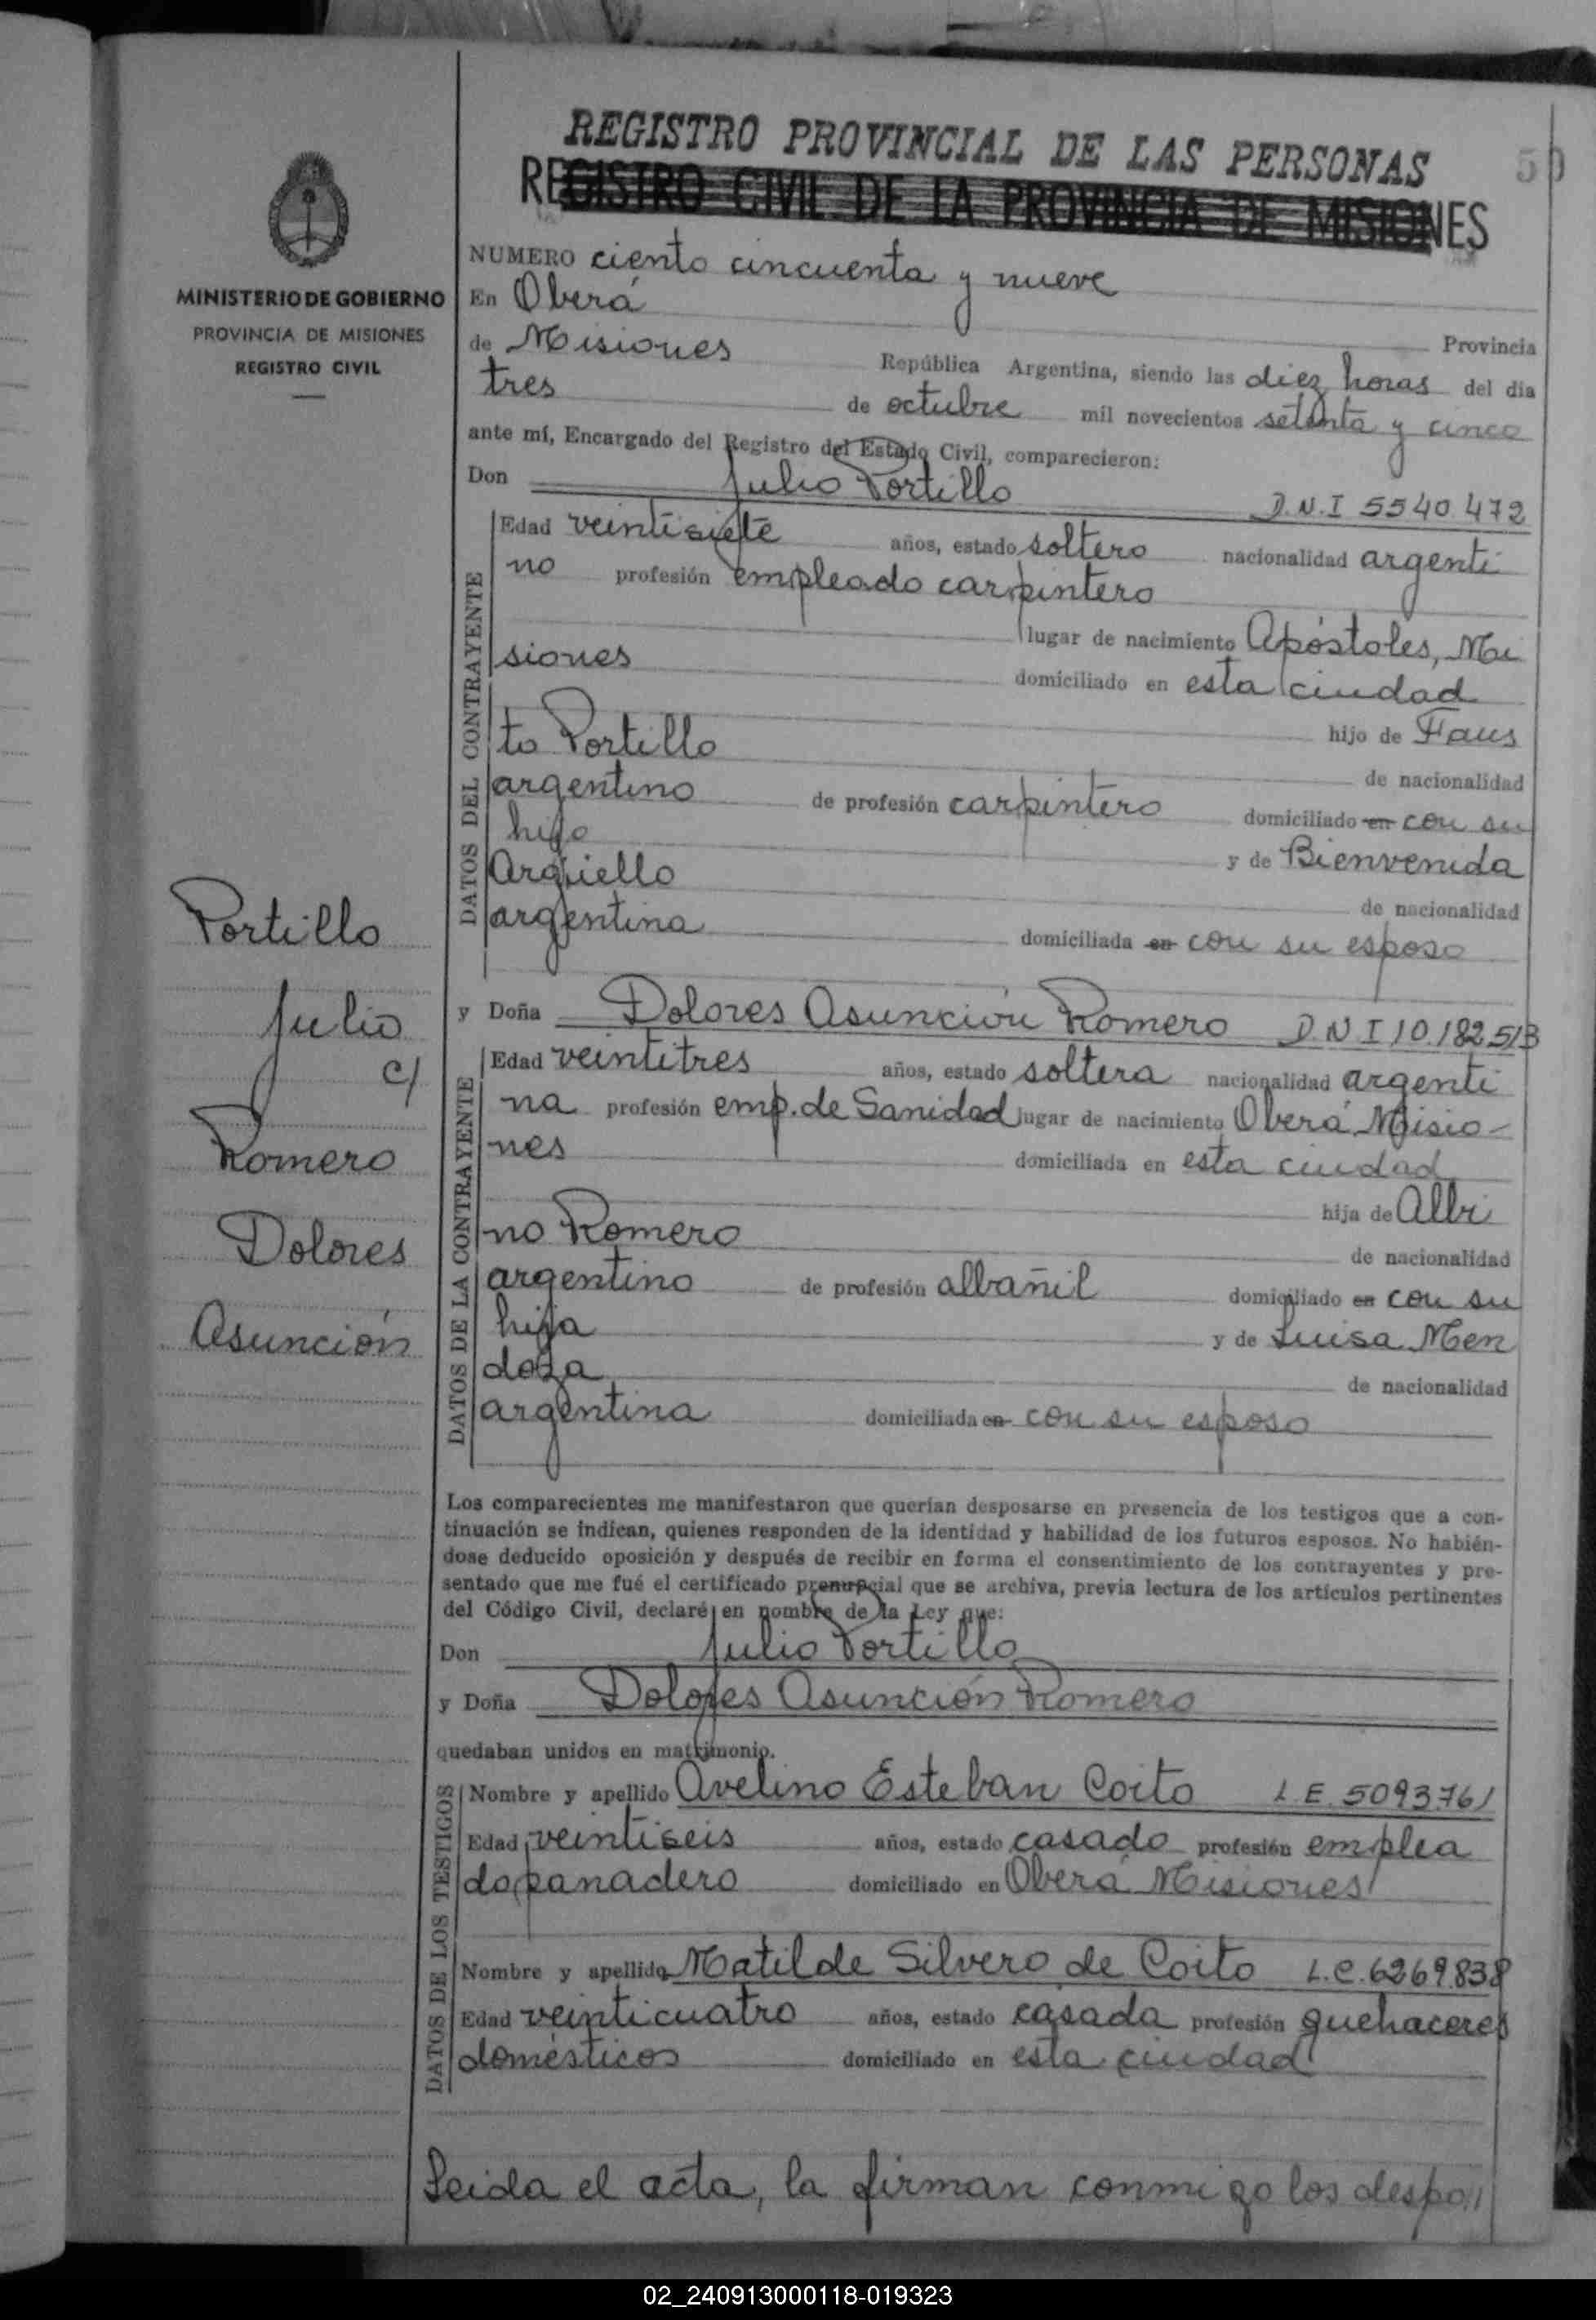 REGISTRO PROVINCIAL DE LAS PERSONAS
50
REGISTRO CIVIL DE LA PROVINCIA DE MISIONES
MINISTERIO DE GOBIERNO
PROVINCIA DE MISIONES
REGISTRO CIVIL
NUMERO ciento cincuenta y nueve
En Oberá
Provincia
de Misiones República Argentina, siendo las diez horas del dia
tres de octubre mil novecientos setenta y cinco
ante mí, Encargado del Registro del Estado Civil, comparecieron:
Don Julio Portillo D.N.I 5540.472
DATOS DEL CONTRAYENTE
Edad veintisiete años, estado soltero nacionalidad argenti
no profesión empleado carpintero
lugar de nacimiento Apóstoles, Mi
siones domiciliado en esta ciudad
hijo de Faus
to Portillo de nacionalidad
argentino de profesión carpintero domiciliado en con su
hijo y de Bienvenida
Argüello de nacionalidad
argentina domiciliada en con su esposo
Portillo
Julio
c/
Romero
Dolores
Asunción
y Doña Dolores Asunción Romero D.N.I 10.182.513
DATOS DE LA CONTRAYENTE
Edad veintitres años, estado soltera nacionalidad argenti
na profesión emp. de Sanidad lugar de nacimiento Oberá Misio-
nes domiciliada en esta ciudad
hija de Albi
no Romero de nacionalidad
argentino de profesión albañil domiciliado en con su
hija y de Luisa Men
doza de nacionalidad
argentina domiciliada en con su esposo
Los comparecientes me manifestaron que querían desposarse en presencia de los testigos que a con-
tinuación se indican, quienes responden de la identidad y habilidad de los futuros esposos. No habién-
dose deducido oposición y después de recibir en forma el consentimiento de los contrayentes y pre-
sentado que me fué el certificado prenupcial que se archiva, previa lectura de los artículos pertinentes
del Código Civil, declaré en nombre de la Ley que:
Don Julio Portillo
y Doña Dolores Asunción Romero
quedaban unidos en matrimonio.
DATOS DE LOS TESTIGOS
Nombre y apellido Avelino Esteban Coito L.E. 5093.761
Edad veintiseis años, estado casado profesión emplea
do panadero domiciliado en Oberá Misiones
Nombre y apellido Matilde Silvero de Coito L.C. 6269.838
Edad veinticuatro años, estado casada profesión quehaceres
domésticos domiciliado en esta ciudad
Leida el acta, la firman conmigo los despo
02_240913000118-019323